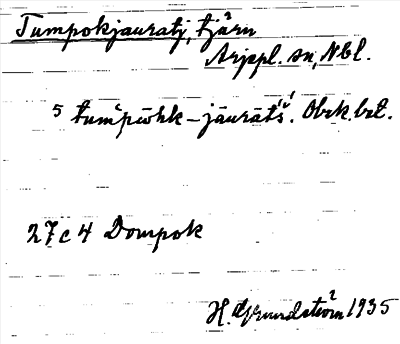 Tumpokjauratj, tjärn
Arjepl. sn, Nbl.
5 tumpōhk-jāurāt́š́. Obek. bet.
27c4 Dompok
H. Grundström 1935